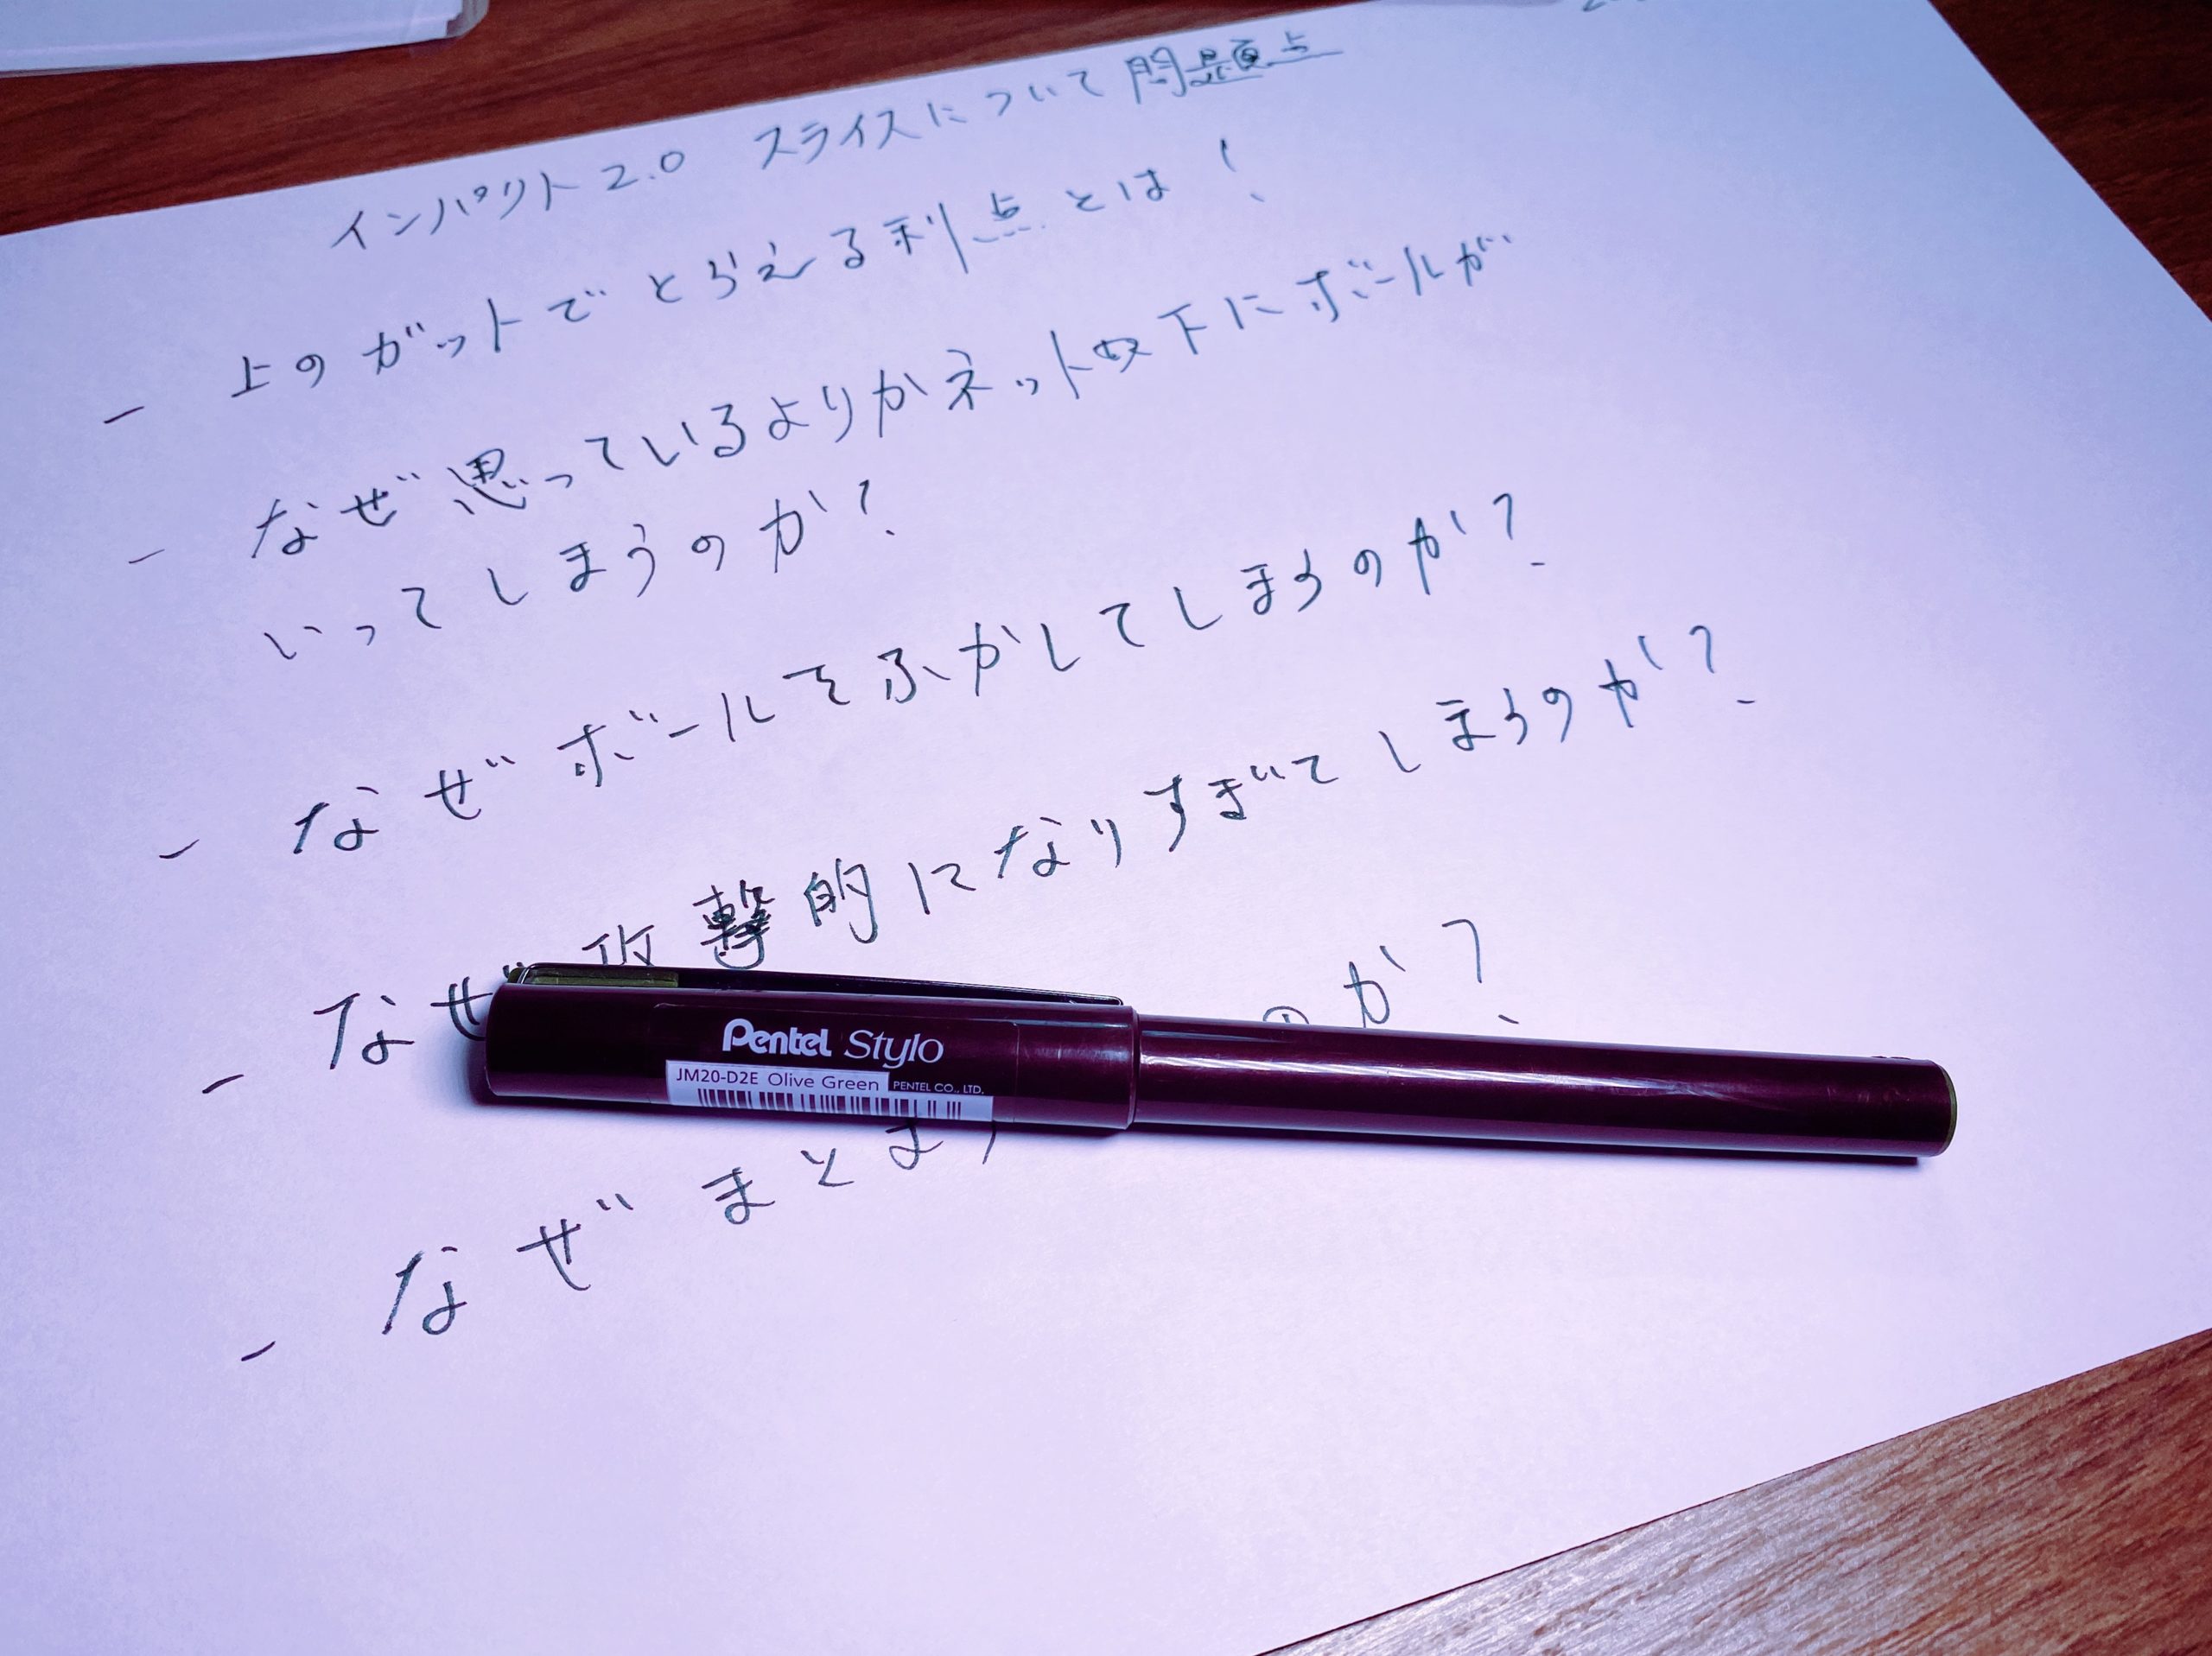 インパクト2.0 スライスについて問題点
- 上のガットでとらえる利点とは!
- なぜ思っているよりかネット以下にボールが
いってしまうのか?
- なぜボールをふかしてしまうのか?
- なぜ攻撃的になりすぎてしまうのか?
- なぜまと のか?
Pentel Stylo
JM20-D2E Olive Green PENTEL CO., LTD.